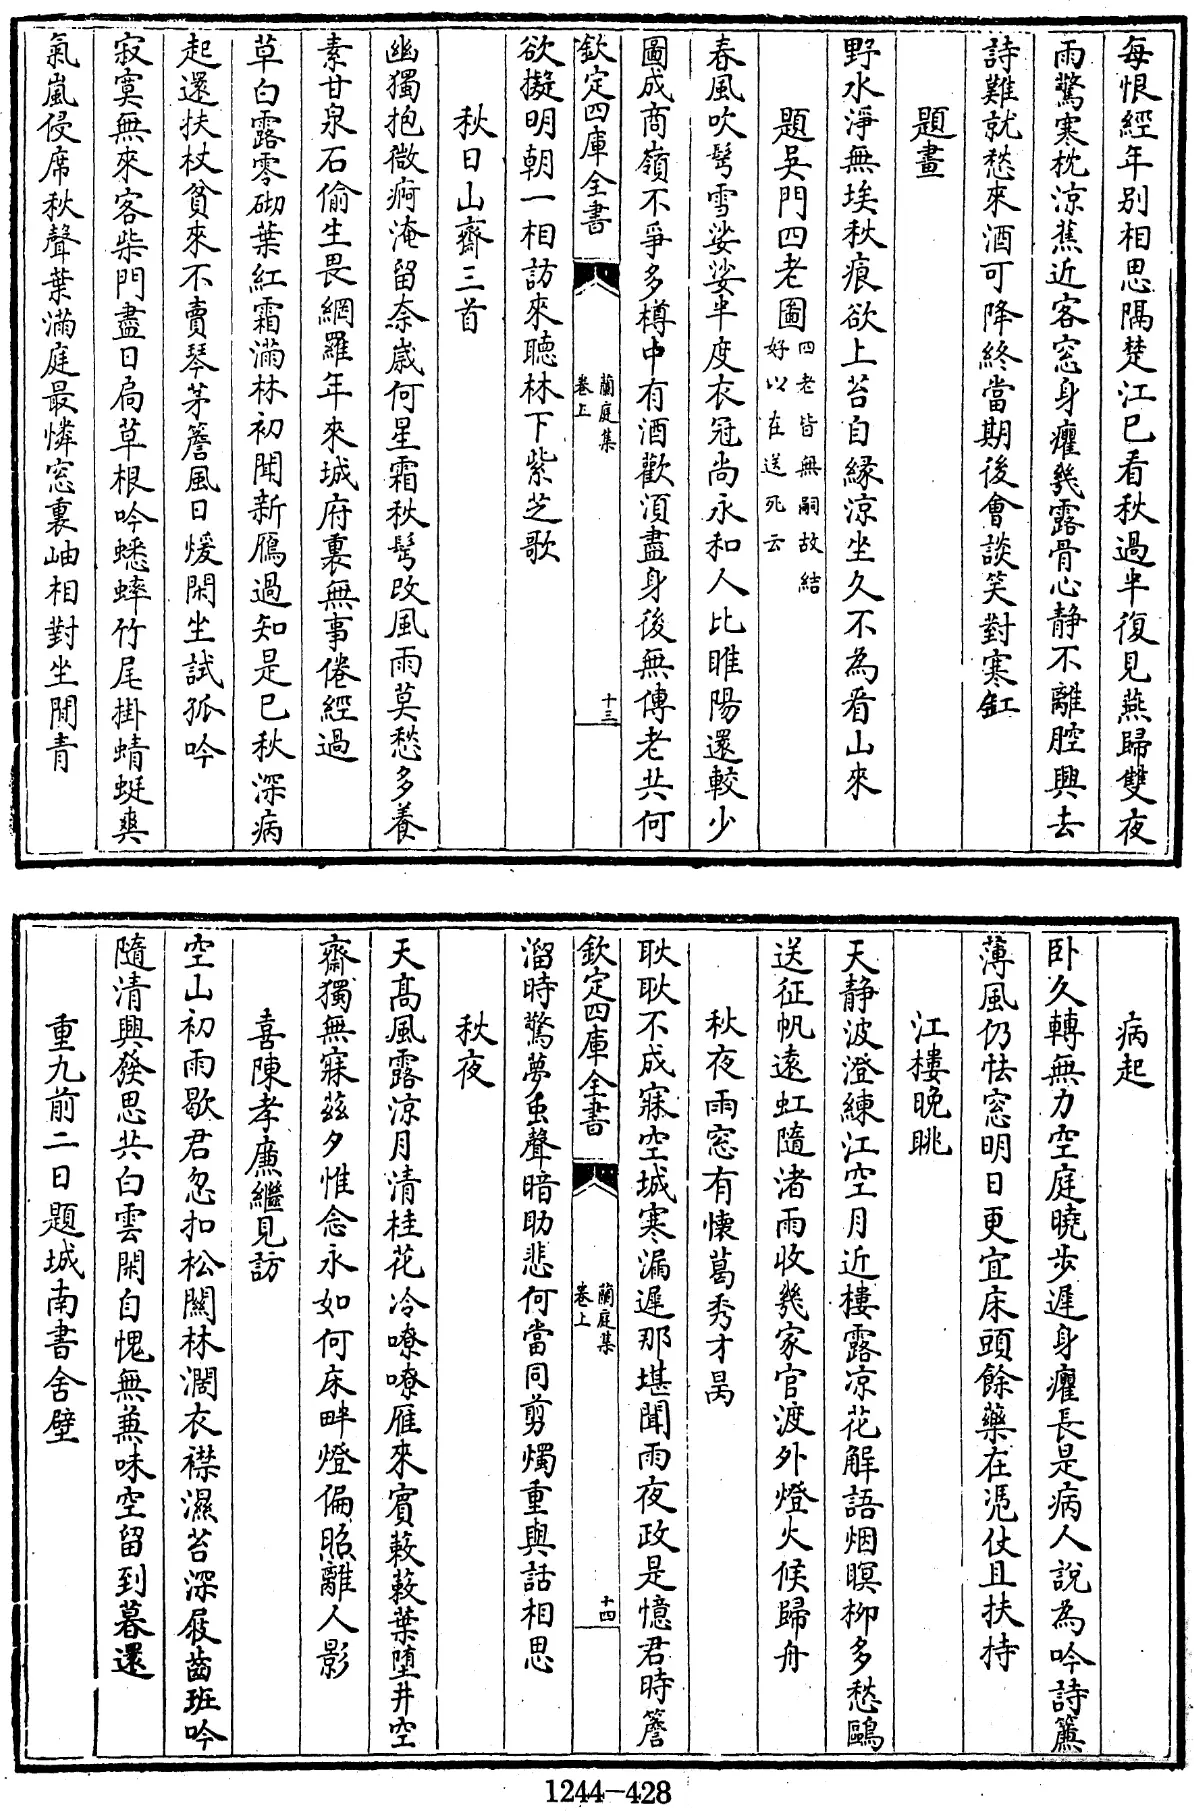 每恨經年别相思隔楚江已看秋過半復見燕歸雙夜
雨驚寒枕涼蕉近客窓身癯幾露骨心静不離腔興去
詩難就愁來酒可降終當期後會談笑對寒缸
題畫
野水淨無埃秋痕欲上苔自縁涼坐久不為看山來
題吳門四老圖四老皆無嗣故結好以在送死云
春風吹髩雪娑娑半度衣冠尚永和人比睢陽還較少
圖成商嶺不爭多樽中有酒歡湏盡身後無傳老共何
欽定四庫全書 蘭庭集卷上 十三
欲擬明朝一相訪來聽林下紫芝歌
秋日山齋三首
幽獨抱微痾淹留奈嵗何星霜秋髩改風雨莫愁多養
素甘泉石偷生畏網羅年來城府裏無事倦經過
草白露零砌葉紅霜滿林初聞新鴈過知是已秋深病
起還扶杖貧來不賣琴茅簷風日煖閑坐試孤吟
寂寞無來客柴門盡日扃草根吟蟋蟀竹尾掛蜻蜓爽
氣嵐侵席秋聲葉滿庭最憐窓裏岫相對坐間青
病起
卧久轉無力空庭曉步遲身癯長是病人説為吟詩簾
薄風仍怯窓明日更宜床頭餘藥在凴仗且扶持
江樓晚眺
天静波澄練江空月近樓露凉花解語烟暝栁多愁鷗
送征帆逺虹隨渚雨收幾家官渡外燈火候歸舟
秋夜雨窓有懐葛秀才昺
耿耿不成寐空城寒漏遲那堪聞雨夜政是憶君時簷
欽定四庫全書 蘭庭集卷上 十四
溜時驚夢䖝聲暗助悲何當同剪燭重與話相思
秋夜
天髙風露涼月清桂花冷嘹嘹雁來賓蔌蔌葉墮井空
齋獨無寐茲夕惟念永如何床畔燈偏照離人影
喜陳孝廉繼見訪
空山初雨歇君忽扣松關林濶衣襟濕苔深屐齒班吟
隨清興發思共白雲閑自愧無兼味空留到暮還
重九前二日題城南書舍壁
1244-428